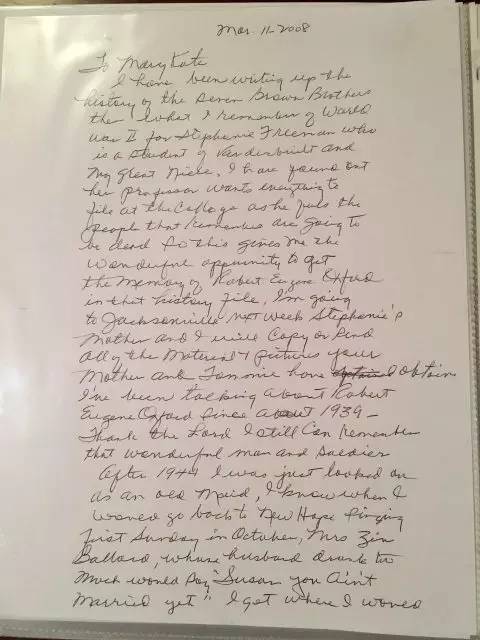 Mar. 11-2008
To Mary Kate
I have been writing up the
history of the Seven Brown Brothers
then what I remember of World
War II for Stephanie Freeman who
is a student of Vanderbuilt and
my great Niece, I have found out
her professor wants everything to
file at the College as he feels the
people that remember are going to
be dead so this gives me the
wonderful oppunity to get
the memory of Robert Eugene Oxford
in that history file, I'm going
to Jacksonville next week Stephanie's
Mother and I will Copy or send
all of the Material & pictures your
Mother and Tommie have obtain
I've been talking about Robert
Eugene Oxford since about 1939-
Thank the Lord I still Can remember
that wonderful man and soldier
After 1944 I was just looked on
as an old Maid, I know when I
would go back to New Hope Singing
first Sunday in October, Mrs
Ballard, whose husband drank too
much would say "Susan you Ain't
Married yet" I got where I would